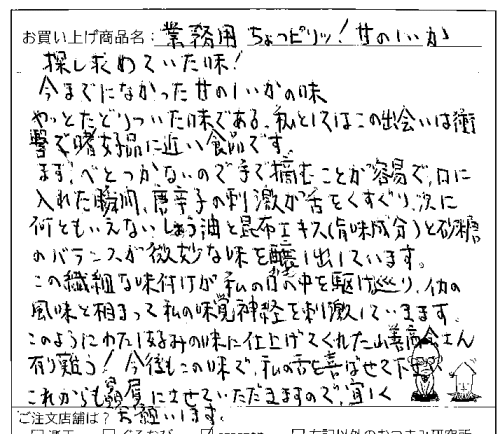 お買い上げ商品名：業務用 ちょっピリッ！甘のしいか
探し求めていた味！
今までになかった甘のしいかの味
やっとたどりついた味である。私としてはこの出会いは衝
撃で嗜好品に近い食品です。
まず、べとつかないので手で摘むことが容易で、口に
入れた瞬間、唐辛子の刺激が舌をくすぐり、次に
何ともいえないしょう油と昆布エキス（旨味成分）と砂糖
のバランスが微妙な味を醸し出しています。
この繊細な味付けが私の口の中を駆け巡り、イカの
風味と相まって私の味覚神経を刺激していますます。
このようにわたし好みの味に仕上げてくれた山善商会さん
有り難う！今後もこの味で、私の舌を喜ばせて下さい
これからも贔屓にさせていただきますので、宜しく
お願いします。
ご注文店舗は？